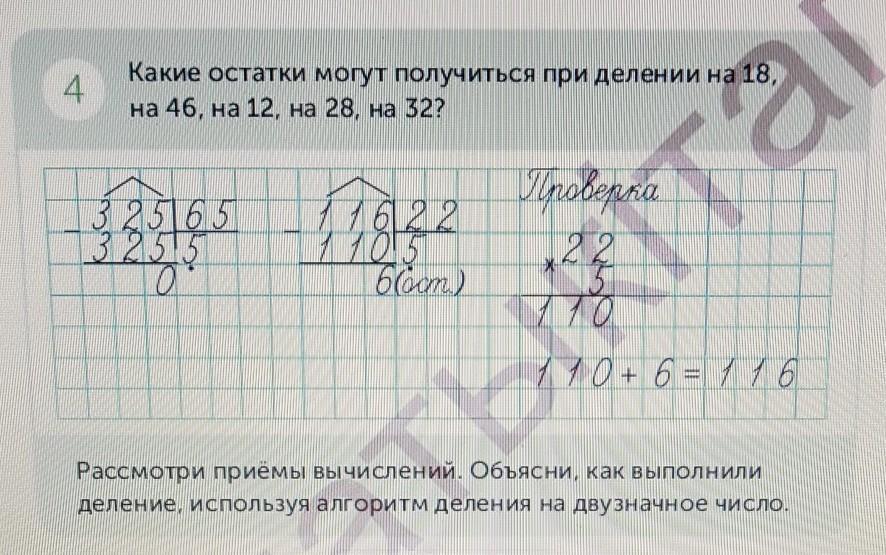 4
Какие остатки могут получиться при делении на 18,
на 46, на 12, на 28, на 32?
Проверка
– 325 65
325 5
0
– 116 22
110 5
6(ост.)
× 22
5
110
110 + 6 = 116
Рассмотри приёмы вычислений. Объясни, как выполнили
деление, используя алгоритм деления на двузначное число.